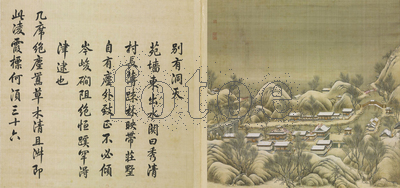 別有洞天
苑墻東出水關曰秀清
村長薄疎林映帶莊墅
自有塵外致正不必傾
岑峻磵阻絕恒蹊罕得
津逮也
几席絕塵囂草木清且淑即
此淩霞標何須三十六
fotoe